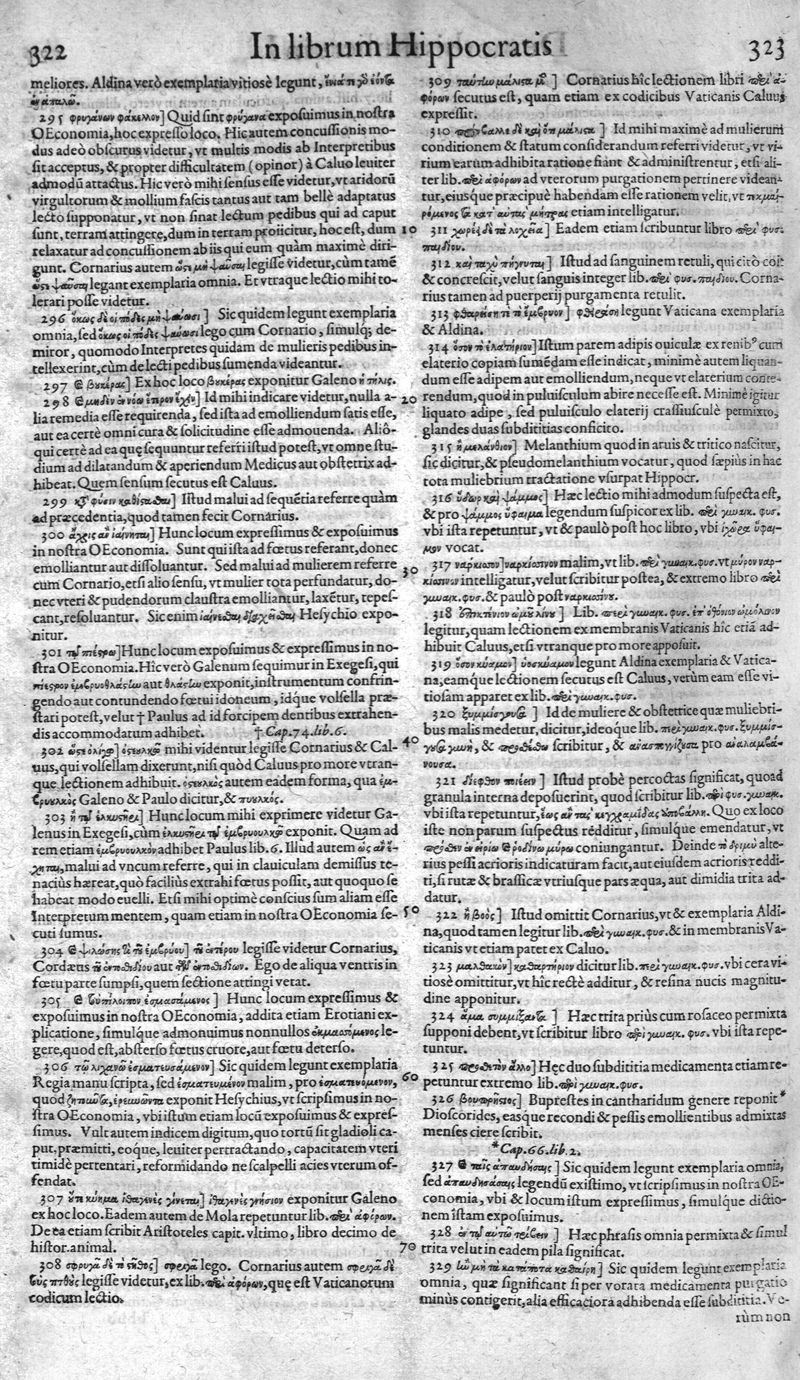 322 In librum Hippocratis 323
meliores. Aldina verò exemplaria vitiosè legunt,
295 φρυγάνων φάκελλον] Quid sint φρύγανα exposuimus in nostra
OEconomia, hoc expresso loco. Hic autem concussionis mo-
dus adeò obscurus videtur, vt multis modis ab Interpretibus
sit acceptus, & propter difficultatem (opinor) à Caluo leuiter
admodũ attactus. Hic verò mihi sensus esse videtur, vt aridorũ
virgultorum & mollium fascis tantus aut tam bellè adaptatus
lecto supponatur, vt non sinat lectum pedibus qui ad caput
sunt, terram attingere, dum in terram proiicitur, hoc est, dum
relaxatur ad concussionem ab iis qui eum quàm maximè diri-
gunt. Cornarius autem ὥστε μὴ ψαῦσαι legisse videtur, cùm tamẽ
ὥστε ψαῦσαι legant exemplaria omnia. Et vtraque lectio mihi to-
lerari posse videtur.
296 ὅκως δὲ οἱ πόδες μὴ ψαύωσι] Sic quidem legunt exemplaria
omnia, sed ὅκως οἱ πόδες ψαύωσι lego cum Cornario, simulq; de-
miror, quomodo Interpretes quidam de mulieris pedibus in-
tellexerint, cùm de lecti pedibus sumenda videantur.
297 βυκέρας] Ex hoc loco βυκέρας exponitur Galeno ἡ τῆλις.
298 Id mihi indicare videtur, nulla a-
lia remedia esse requirenda, sed ista ad emolliendum satis esse,
aut ea certè omni cura & solicitudine esse admouenda. Aliô-
qui certè ad ea quę sequuntur referri istud potest, vt omne stu-
dium ad dilatandum & aperiendum Medicus aut obstetrix ad-
hibeat. Quem sensum secutus est Caluus.
299 Istud malui ad sequẽtia referre quàm
ad præcedentia, quod tamen fecit Cornarius.
300 ἄχρις ἂν ἰαίνηται] Hunc locum expressimus & exposuimus
in nostra OEconomia. Sunt qui ista ad fœtus referant, donec
emolliantur aut dissoluantur. Sed malui ad mulierem referre
cum Cornario, etsi alio sensu, vt mulier tota perfundatur, do-
nec vteri & pudendorum claustra emolliantur, laxẽtur, tepes-
cant, resoluantur. Sic enim Hesychio expo-
nitur.
301 Hunc locum exposuimus & expressimus in no-
stra OEconomia. Hic verò Galenum sequimur in Exegesi, qui
πίεστρον ἐμβρυοθλάστην aut θλάστην exponit, instrumentum confrin-
gendo aut contundendo fœtui idoneum, idque volsella præ-
stari potest, velut † Paulus ad id forcipem dentibus extrahen-
dis accommodatum adhibet. † Cap. 74. lib. 6.
302 mihi videntur legisse Cornarius & Cal-
uus, qui volsellam dixerunt, nisi quòd Caluus pro more vtran-
que lectionem adhibuit. ὀστεολκὸς autem eadem forma, qua ἐμ-
βρυολκὸς Galeno & Paulo dicitur, &
303 Hunc locum mihi exprimere videtur Ga-
lenus in Exegesi, cùm ἑλκυστῆρι τῷ ἐμβρυουλκῷ exponit. Quam ad
rem etiam ἐμβρυουλκὸν adhibet Paulus lib. 6. Illud autem ὡς ἂν ἔ-
χηται, malui ad vncum referre, qui in clauiculam demissus te-
nacius hæreat, quò faciliùs extrahi fœtus possit, aut quoquo se
habeat modo euelli. Etsi mihi optimè conscius sum aliam esse
Interpretum mentem, quam etiam in nostra OEconomia se-
cuti sumus.
304 legisse videtur Cornarius,
Cordæus aut Ego de aliqua ventris in
fœtu parte sumpsi, quem sectione attingi vetat.
305 Hunc locum expressimus &
exposuimus in nostra OEconomia, addita etiam Erotiani ex-
plicatione, simulque admonuimus nonnullos ἐκμασσόμενος le-
gere, quod est, absterso fœtus cruore, aut fœtu deterso.
306 τῷ λιχανῷ ἐσματευσάμενον] Sic quidem legunt exemplaria
Regia manu scripta, sed ἐσματευμένον malim, pro ἐσματευόμενον,
quod ζητοῦντα, ἐρευνῶντα exponit Hesychius, vt scripsimus in no-
stra OEconomia, vbi istum etiam locũ exposuimus & expres-
simus. Vult autem indicem digitum, quo tortũ sit gladioli ca-
put, præmitti, eoque, leuiter pertractando, capacitatem vteri
timidè pertentari, reformidando ne scalpelli acies vterum of-
fendat.
307 ὑπὲρ κύημα ἰθαγενὲς γίνεται] ἰθαγενὲς γνήσιον exponitur Galeno
ex hoc loco. Eadem autem de Mola repetuntur lib. περὶ ἀφόρων.
De ea etiam scribit Aristoteles capit. vltimo, libro decimo de
histor. animal.
308 lego. Cornarius autem
legisse videtur, ex lib. περὶ ἀφόρων, quę est Vaticanorum
codicum lectio.
309 Cornarius hîc lectionem libri περὶ ἀ-
φόρων secutus est, quam etiam ex codicibus Vaticanis Caluus
expressit.
310 Id mihi maximè ad mulierum
conditionem & statum considerandum referri videtur, vt vi-
rium earum adhibita ratione fiant & administrentur, etsi ali-
ter lib. περὶ ἀφόρων ad vterorum purgationem pertinere videan-
tur, eiusque præcipuè habendam esse rationem velit, vt τεκμαι-
ρόμενος τὰ κατ᾽ αὐτὰς μήτρας etiam intelligatur.
311 χωρέει δὲ τὰ λοχεῖα] Eadem etiam scribuntur libro περὶ φυσ.
παιδίου.
312 καὶ ταχὺ πήγνυται] Istud ad sanguinem retuli, qui citò coit
& concrescit, velut sanguis integer lib. περὶ φυσ. παιδίου. Corna-
rius tamen ad puerperij purgamenta retulit.
313 legunt Vaticana exemplaria
& Aldina.
314 ὅσον τὸ ἐλατήριον] Istum parem adipis ouiculæ ex renibꝰ cum
elaterio copiam sumẽdam esse indicat, minimè autem liquan-
dum esse adipem aut emolliendum, neque vt elaterium conte-
rendum, quod in puluisculum abire necesse est. Minimè igitur
liquato adipe, sed puluisculo elaterij crassiusculè permixto,
glandes duas subdititias conficito.
315 ἢ μελάνθιον] Melanthium quod in aruis & tritico nascitur,
sic dicitur, & pseudomelanthium vocatur, quod sæpius in hac
tota muliebrium tractatione vsurpat Hippocr.
316 ὕδωρ καὶ ψάμμος] Hæc lectio mihi admodum suspecta est,
& pro ψάμμος ὕφαιμα legendum suspicor ex lib. περὶ γυναικ. φυσ.
vbi ista repetuntur, vt & paulò post hoc libro, vbi ἰχῶρα ὕφαι-
μον vocat.
317 ναρκίσσου] ναρκίσσινον malim, vt lib. περὶ γυναικ. φυσ. vt μύρον ναρ-
κίσσινον intelligatur, velut scribitur postea, & extremo libro περὶ
γυναικ. φυσ. & paulò pòst ναρκισσίνου.
318 Lib. περὶ γυναικ. φυσ. ἐπ᾽ ὀθόνιον ὠμόλινον
legitur, quam lectionem ex membranis Vaticanis hîc etiã ad-
hibuit Caluus, etsi vtranque pro more apposuit.
319 ὅσον κύαμον] ὑοσκύαμον legunt Aldina exemplaria & Vatica-
na, eamque lectionem secutus est Caluus, verùm eam esse vi-
tiosam apparet ex lib. περὶ γυναικ. φυσ.
320 Id de muliere & obstetrice quæ muliebri-
bus malis medetur, dicitur, ideoque lib. περὶ γυναικ. φυσ.
& scribitur, & pro ἀναλαμβά-
νουσα.
321 διεφθὸν ποιέειν] Istud probè percoctas significat, quoad
granula interna deposuerint, quod scribitur lib. περὶ φυσ. γυναικ.
vbi ista repetuntur, ἕως ἂν τὰς κεγχραμίδας ἀποβάλῃ. Quo ex loco
iste non parum suspectus redditur, simulque emendatur, vt
coniungantur. Deinde τὸ δριμὺ alte-
rius pessi acrioris indicaturam facit, aut eiusdem acrioris reddi-
ti, si rutæ & brassicæ vtriusque pars æqua, aut dimidia trita ad-
datur.
322 ἢ βοὸς] Istud omittit Cornarius, vt & exemplaria Aldi-
na, quod tamen legitur lib. περὶ γυναικ. φυσ. & in membranis Va-
ticanis vt etiam patet ex Caluo.
323 μαλθακὸν] καθαρτήριον dicitur lib. περὶ γυναικ. φυσ. vbi cera vi-
tiosè omittitur, vt hîc rectè additur, & resina nucis magnitu-
dine apponitur.
324 ἅμα συμμίξαντα] Hæc trita priùs cum rosaceo permixta
supponi debent, vt scribitur libro περὶ γυναικ. φυσ. vbi ista repe-
tuntur.
325 πρόσθετον ἄλλο] Hęc duo subdititia medicamenta etiam re-
petuntur extremo lib. περὶ γυναικ. φυσ.
326 βουπρήστιος] Buprestes in cantharidum genere reponit *
Dioscorides, easque recondi & pessis emollientibus admixtas
menses ciere scribit.
* Cap. 66. lib. 2.
327 Sic quidem legunt exemplaria omnia,
sed legendũ existimo, vt scripsimus in nostra OE-
conomia, vbi & locum istum expressimus, simulque dictio-
nem istam exposuimus.
328 ἐν τῷ αὐτῷ τρίβειν] Hæc phrasis omnia permixta & simul
trita velut in eadem pila significat.
329 Sic quidem legunt exemplaria
omnia, quæ significant si per vorata medicamenta purgatio
minùs contigerit, alia efficaciora adhibenda esse subdititia. Ve-
rùm non
10
20
30
40
50
60
70